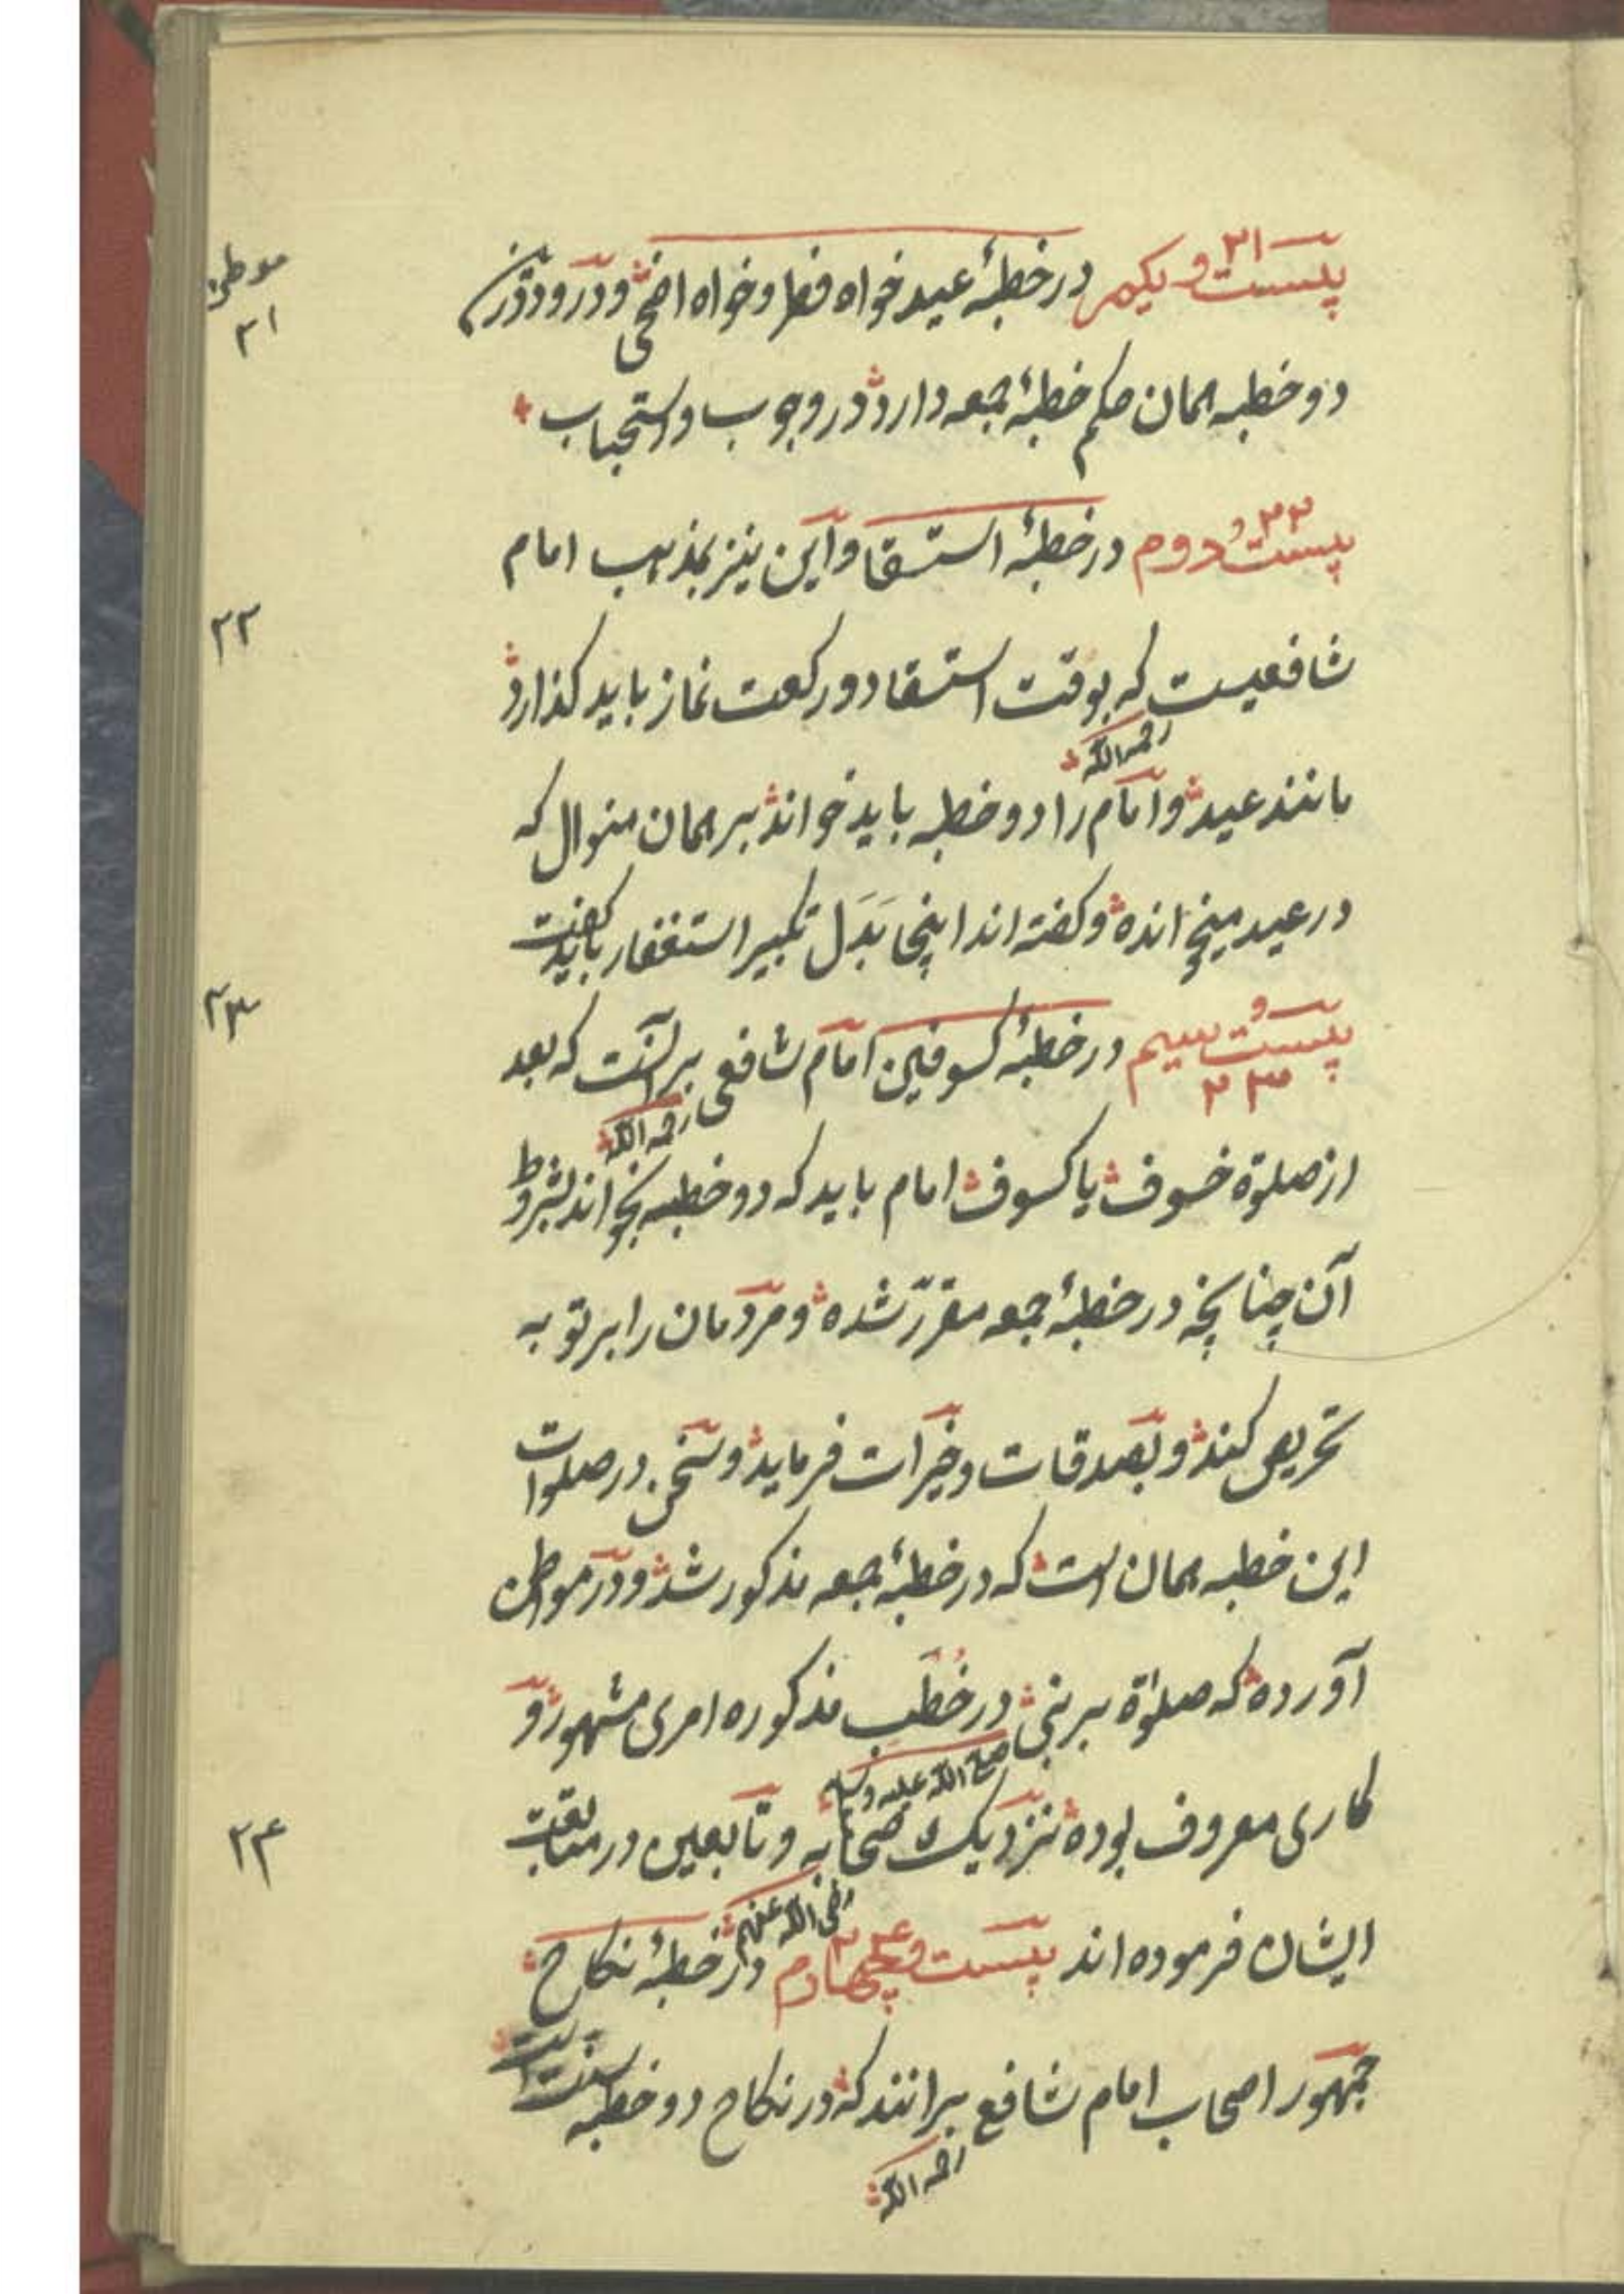 موطن ۲۱
بیست و یکم ۲۱ در خطبهٔ عید خواه فطر و خواه اضحی و درود درین
دو خطبه همان حکم خطبهٔ جمعه دارد در وجوب و استحباب
بیست و دوم ۲۲ در خطبهٔ استسقا و این نیز بمذهب امام
۲۲
شافعیست رحمه الله که بوقت استسقا دو رکعت نماز باید کذارد
مانند عید و امام را دو خطبه باید خواند بر همان منوال که
در عید میخوانده و کفته اند اینجا بَدَل تکبیر استغفار باید کفت
۲۳
بیست و سیم ۲۳ در خطبهٔ کسوفین امام شافعی رحمه الله بر آنست که بعد
از صلوة خسوف یا کسوف امام باید که دو خطبه بخواند بشروط
آن چنانچه در خطبهٔ جمعه مقرّر شده و مردمان را بر توبه
تحریص کند و بصدقات و خیرات فرماید و سخن در صلوات
این خطبه همان است که در خطبهٔ جمعه مذکور شد و در مواطن
آورده که صلوٰة بر نبی صلی الله علیه وسلم در خُطَب مذکوره امری مشهور و
کاری معروف بوده نزدیک صحابه و تابعین رضی الله عنهم در متابعت
۲۴
ایشان فرموده اند بیست و چهارم ۲۴ در خطبهٔ نکاح
جمهور اصحاب امام شافعی رحمه الله برانند که در نکاح دو خطبه سنت است